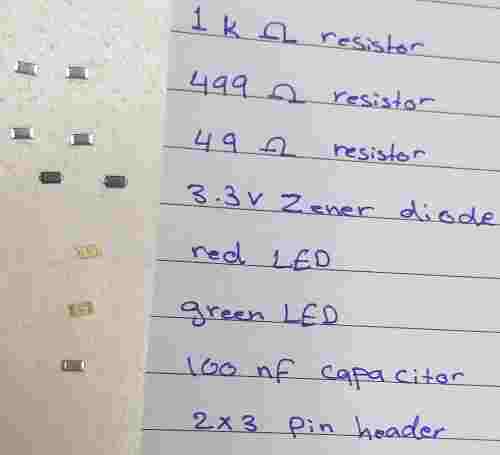 1 k Ω resistor
499 Ω resistor
49 Ω resistor
3.3v Zener diode
red LED
green LED
100 nf capacitor
2x3 pin header